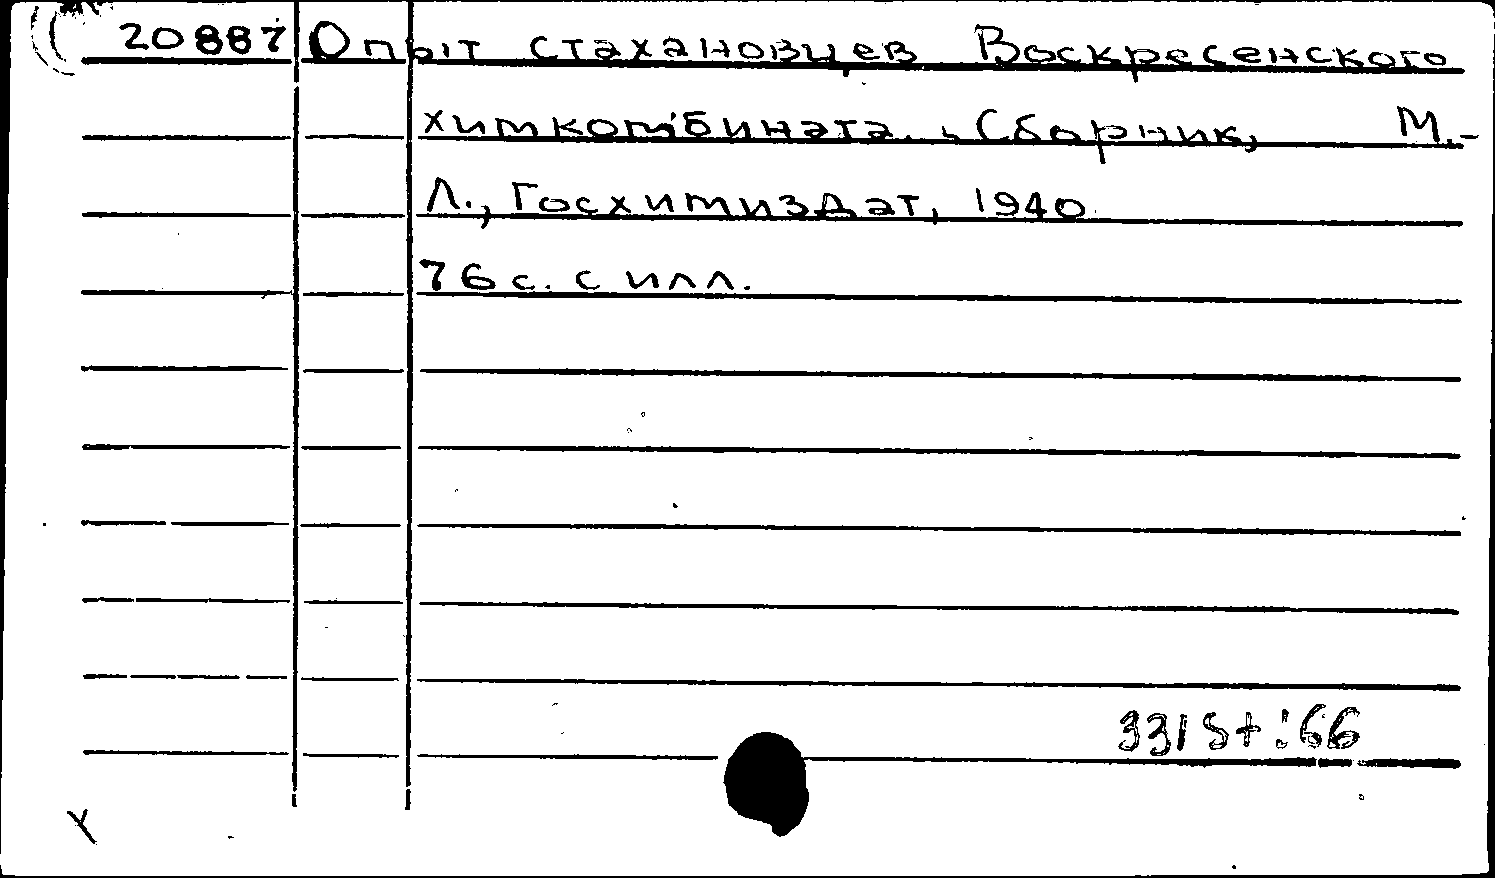 20887 Опыт стахановцев Воскресенского
химкомбината. Сборник, М.-
Л., Госхимиздат, 1940
76 с. с илл.
331 St:66